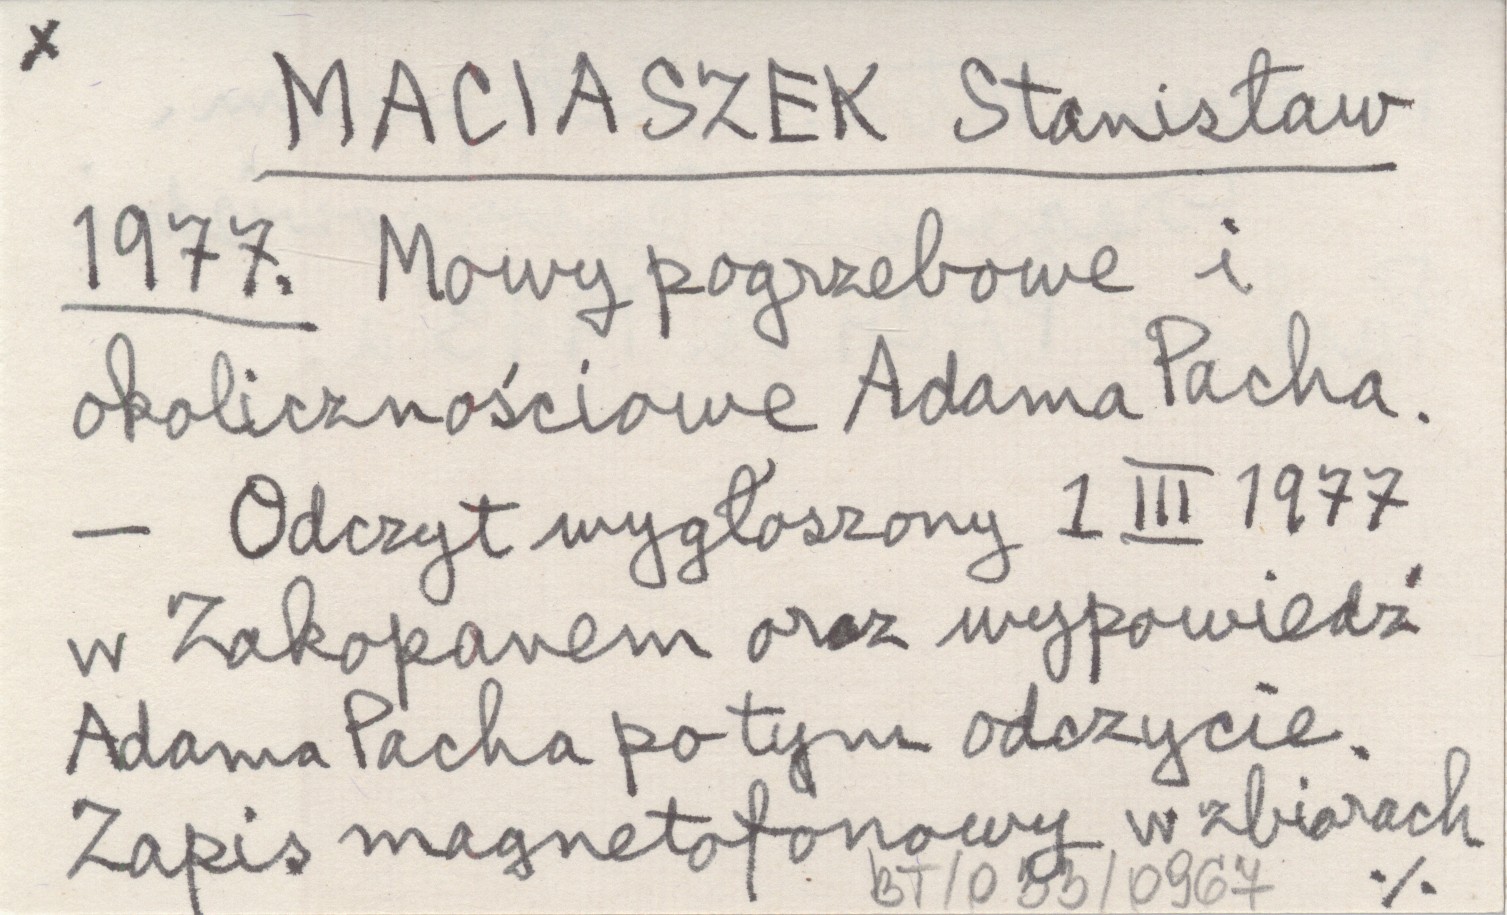 x
MACIASZEK Stanisław
1977. Mowy pogrzebowe i
okolicznościowe Adama Pacha.
— Odczyt wygłoszony 1 III 1977
w Zakopanem oraz wypowiedź
Adama Pacha po tym odczycie.
Zapis magnetofonowy w zbiorach
BT/0 335/0967 ·/.